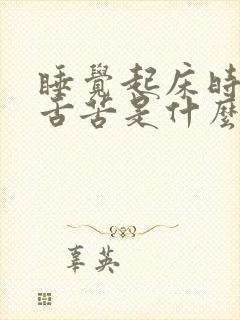 睡覺起床時
舌苦是什麼
辜英